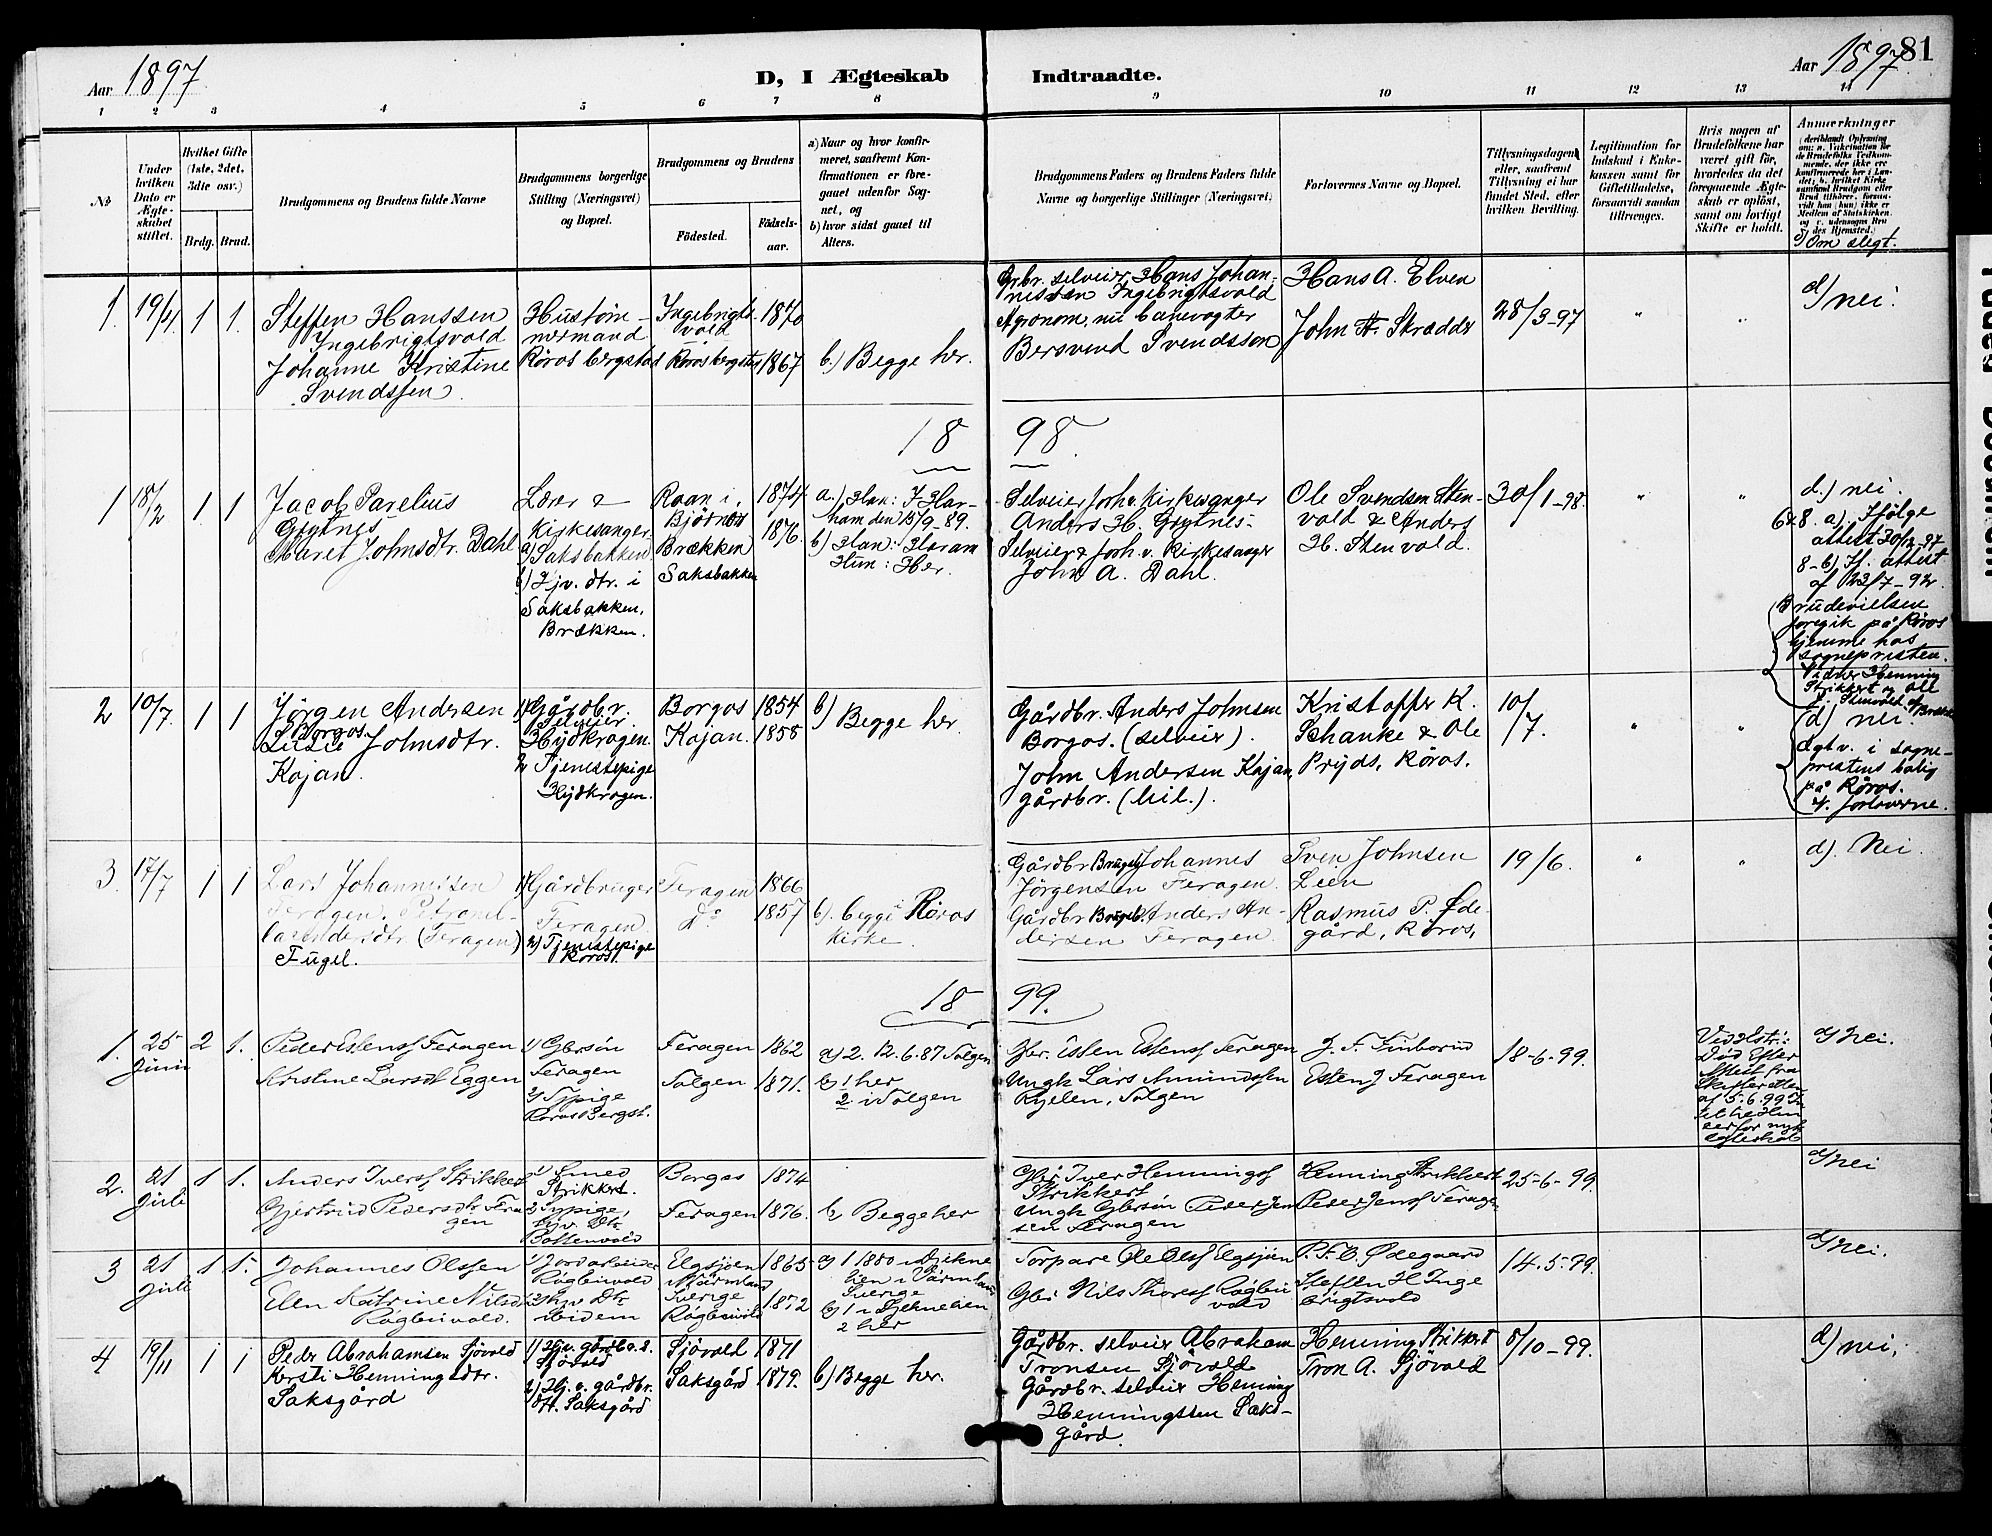 Aar 1897
D, I Ægteskab Indtraadte.
Aar 1897.
81
1 2 3 4 5 6 7 8 9 10 11 12 13 14
No
Under hvilken Dato er Ægteskabet stiftet.
Hvilket Gifte (1ste, 2det, 3die osv.)
Brdg. Brud.
Brudgommens og Brudens fulde Navne
Brudgommens borgerlige Stilling (Næringsvei) og Bopæl.
Brudgommens og Brudens
Fødested.
Fødselsaar.
a) Naar og hvor konfirmeret, saafremt Konfirmationen er foregaaet udenfor Sognet, og
b) hvor sidst gaaet til Alters.
Brudgommens Faders og Brudens Faders fulde Navne og borgerlige Stillinger (Næringsvei)
Forlovernes Navne og Bopæl.
Tillysningsdagen eller, saafremt Tillysning ei har fundet Sted, efter hvilken Bevilling.
Legitimation for Indskud i Enkekassen samt for Giftetilladelse, forsaavidt saadan tiltrænges.
Hvis nogen af Brudefolkene har været gift før, hvorledes da det foregaaende Ægteskab er opløst, samt om lovligt Skifte er holdt.
Anmærkninger
d) Om slegt.
1. 19/4 1 1.
Steffen Hanssen
Ingebrigtsvold
Johanne Kristine
Svendssen
Hustømmermand
Røros bergstad
Ingebrigtsvold
Røros bergstad
1870
1867
b.) Begge her.
Grbr. selveier, Hans Johannissen Ingebrigtsvold
Agronom, nu banevogter
Bersvend Svendsson
Hans A. Elven
John H. Strædde
28/3-97
" "
d/ nei.
1898.
1 18/2 1 1
Jacob Parelius
Grytnes
Maret Johnsdtr. Dahl
Lærer &
Kirkesanger
a) Saksbakken
b) Hjv. dtr. i
Saksbakken,
Brækken.
Roan i
Bjørnør
Brækken
Saksbakken
1874
1876.
a.) Han: I Harham den 15/9-89.
b) Han: Haram
Hun: Her.
Selveier, forh.v. Kirkesanger
Anders H. Grytnes
Selveier & forh. v. Kirkesanger
John A. Dahl.
Ole Svendsen Stenvold & Anders
H. Stenvold.
30/1-98.
" "
d.) nei.
6&8. a). Ifølge
attest 30/12-97
8-b) If. attest
af 23/7-92.
Brudevielsen
foregik på Røros
hjemme hos
sognepresten.
Vidner Henning
Strikkert og Ole
2 10/7. 1 1
Jørgen Andersen
Borgos.
Lisie Johnsdtr.
Kojan.
1) Gårdbr.
Selveier.
Hydkrogen.
2) Tjenestepige
Hydkrogen.
Borgos
Kojan.
1854
1858
b) Begge her.
Gårdbr. Anders Johnsen
Borgos. (selveier).
John Andersen Kojan,
gårdbr. (bil.).
Kristoffer K.
Schanke & Ole
Pryds, Røros.
10/7.
" "
(d) nei.
Ægtv. i sogneprestens bolig
på Røros.
V. forloverne.
3. 17/7 1 1
Lars Johannessen
Feragen. Petronella Andersdtr. (Feragen)
Fugel.
1) Gårdbruger
Feragen.
2) Tjenestepige
Røros.
Feragen
Do
1866
1857
b). begge i Røros
kirke.
Gårdbr Brugsey Johannes
Jörgensen Feragen.
Gårdbr Anders Andersen Feragen.
Sven Johnsen
Leen
Rasmus P. Ødegård, Røros,
19/6.
" "
d). Nei.
1899.
1. 25 Juni 2 1.
Peder Estensf Feragen
Kristine Larsdt Eggen
1) Gbrsøn
Feragen
2) Tjpige
Røros Bergst.
Feragen
Tolgen
1862
1871.
a) 2. 12.6.87 Tolgen
b) 1 her
2. i Tolgen
Gbr. Esten Estensf Feragen
Ungk Lars Amundssen
Ryelen, Tolgen
Esten J Feragen
18-6-99.
Død Efter
Attest fra
Skifteretten
af 5.6.99
d) nei.
2. 21 Juli 1 1.
Anders Iversf Strikkert
Gjertrud Pedersdtr Feragen
1) Smed
Strikkert.
2) Tjpige,
hjv. Dtr
Borgos
Feragen
1874
1876.
b) Begge her
Gbr Iver Henningsf
Strikkert
Ungk Gbrsøn Peder Jensen Feragen
Henning Strikkert
Peder Jensf Feragen
25-6-99.
d) nei
3 21 Juli 1 1.
Johannes Olssen
Elen Katrine Nilsd
Røgleivold.
1) Jordarbeider
Røgleivold
2) Hjv. Dtr
ibidem
Elgsjøen
Värmland
Sverige
Røgleivold
1865
1872
a) 1 1880 i
i Värmland
Sverige
b) 1 i
2 her
Torpare Ole Olsf Elgsjøen
Gbr Nils Thoresf Røgleivold
P. F. O. Ødegaard
Steffen H Ingebrigtsvold
14-5-99.
d) nei.
4 19/11 1 1
Peder Abrahamsen Sjøvold
Kersti Henningsdtr.
Saksgård
1) Hjv. gårdbr.s.
Sjøvold
2) Hj. v. gårdbr.
H. Saksgård
Sjøvold
Saksgård
1871
1879.
b) Begge her.
Gårdbr. selveier Abraham
Tronsen Sjøvold
Gårdbr. selveier Henning
Henningssen Saksgård.
Henning Strikkert
Tron A. Sjøvold
8/10-99.
d) nei,